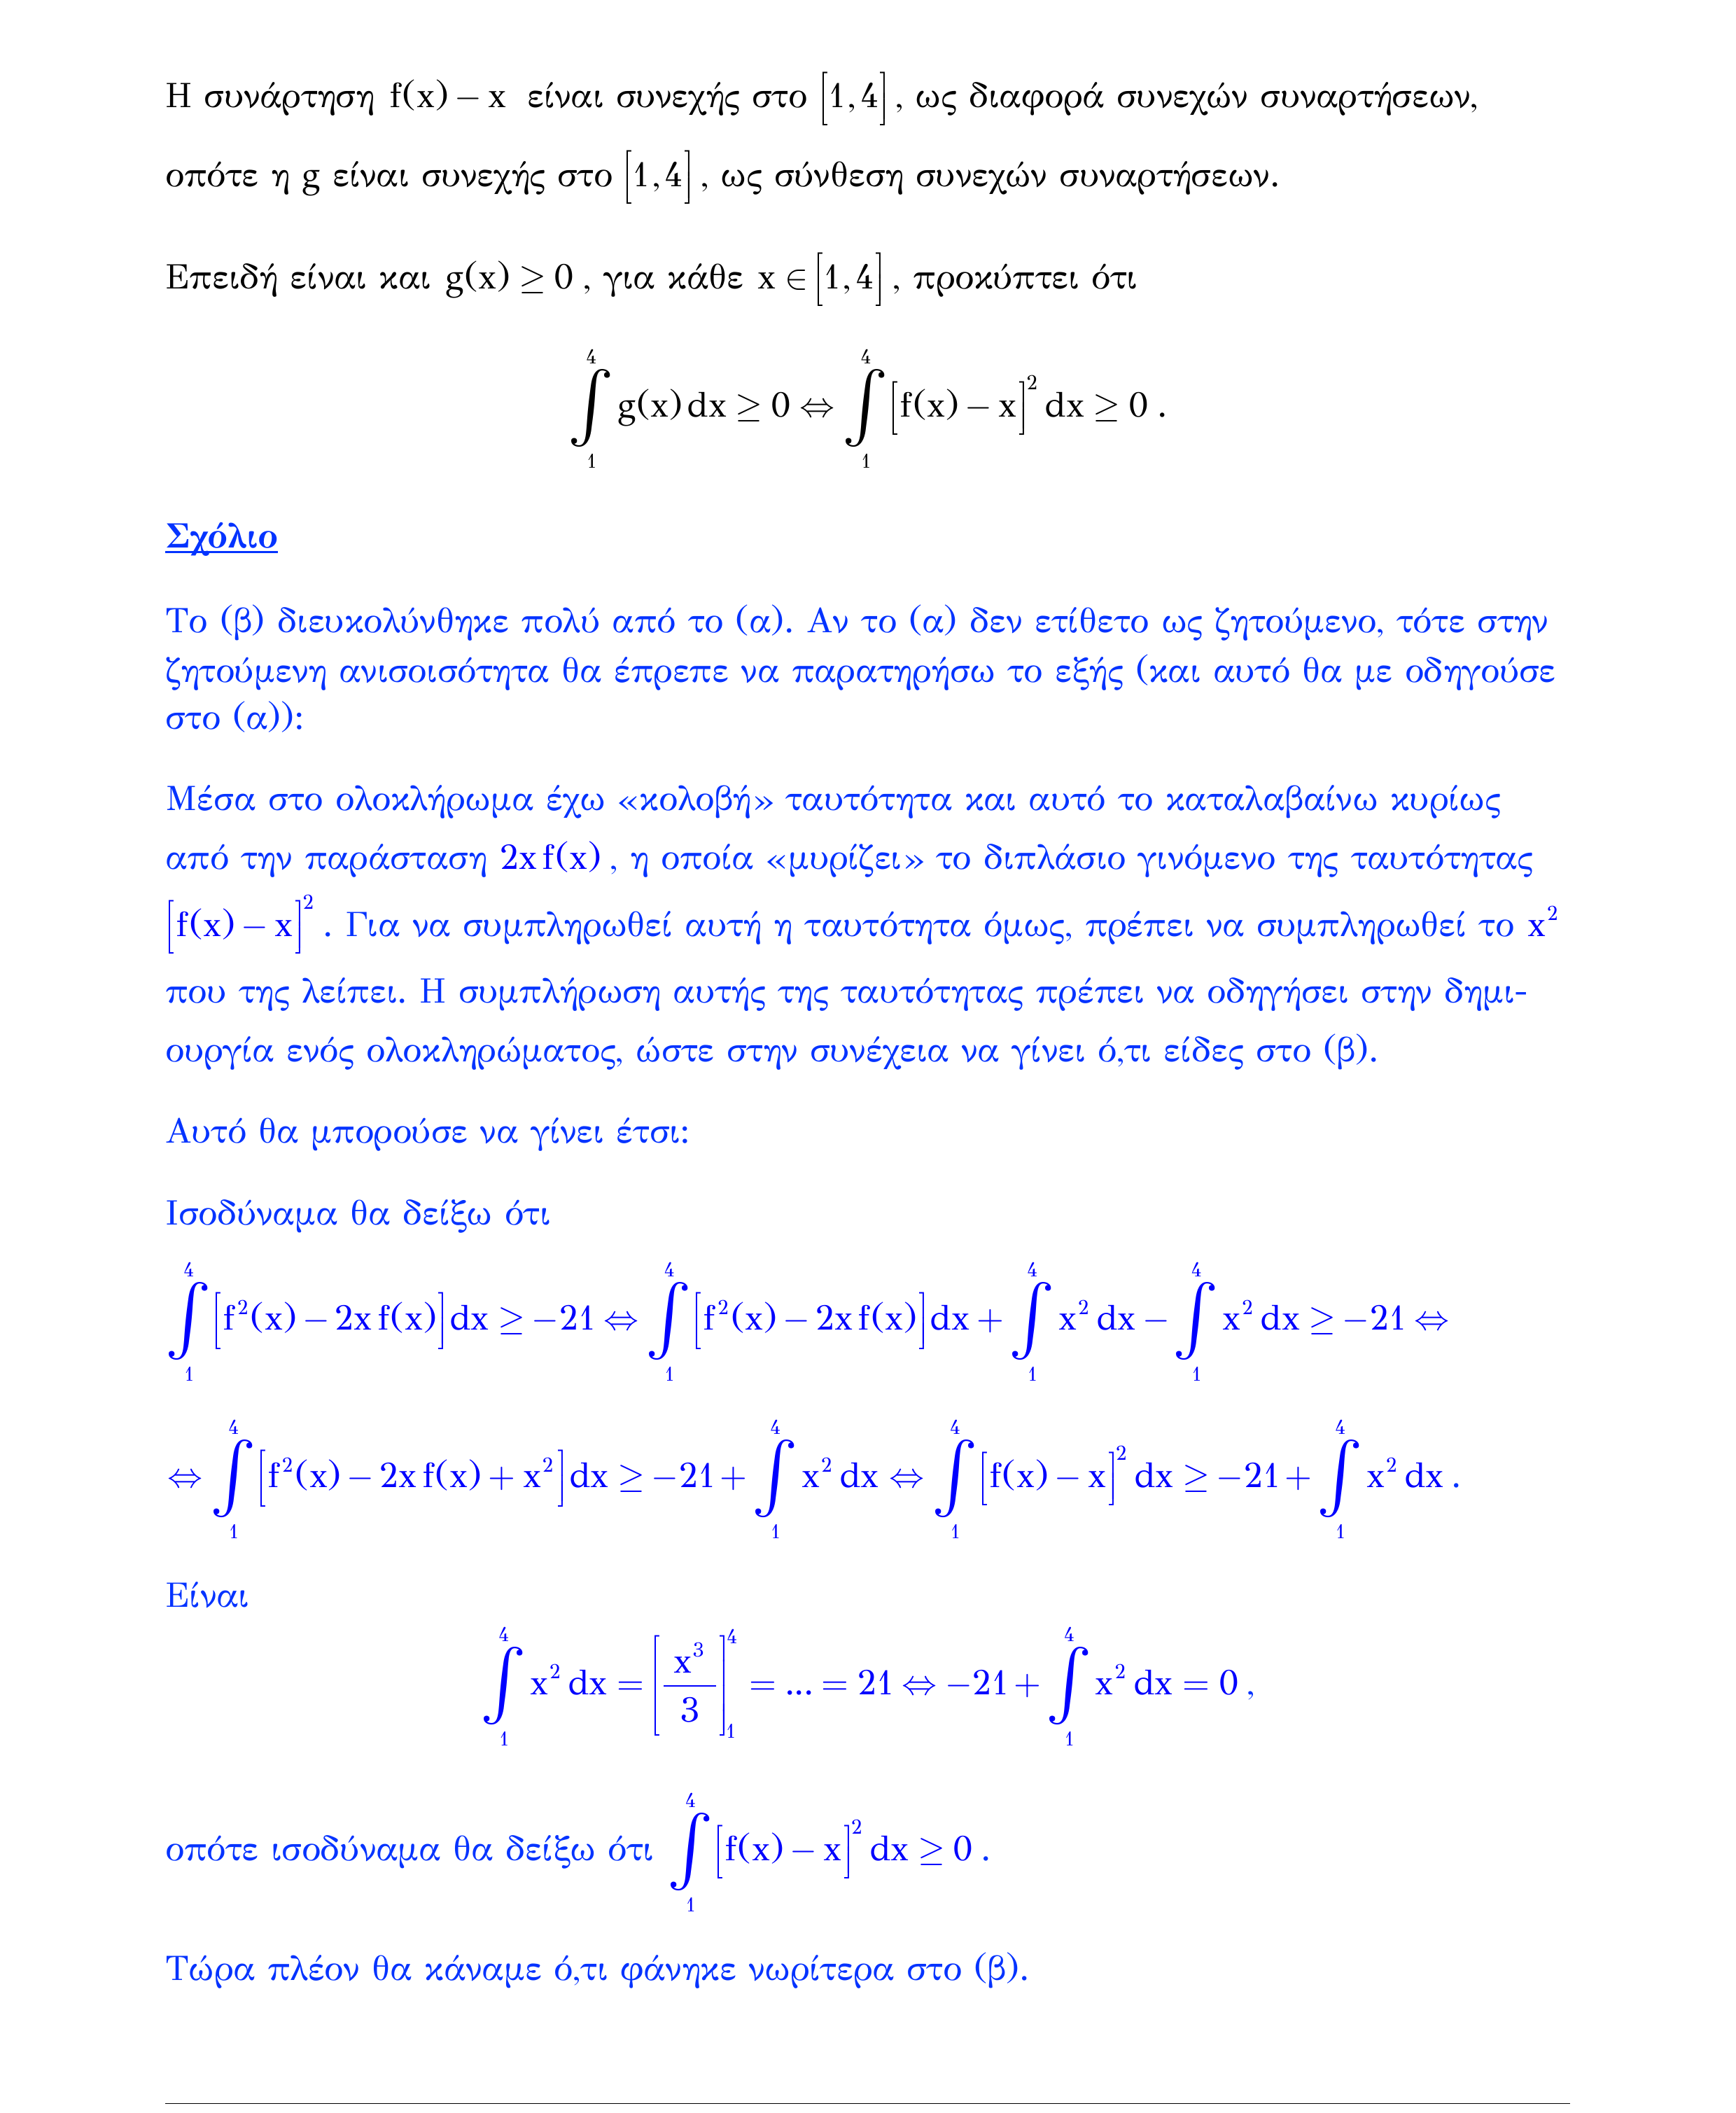 Η συνάρτηση f(x) − x είναι συνεχής στο [1,4], ως διαφορά συνεχών συναρτήσεων,
οπότε η g είναι συνεχής στο [1,4], ως σύνθεση συνεχών συναρτήσεων.
Επειδή είναι και g(x) ≥ 0 , για κάθε x ∈ [1,4], προκύπτει ότι
∫₁⁴ g(x) dx ≥ 0 ⇔ ∫₁⁴ [f(x) − x]² dx ≥ 0 .
Σχόλιο
Το (β) διευκολύνθηκε πολύ από το (α). Αν το (α) δεν ετίθετο ως ζητούμενο, τότε στην
ζητούμενη ανισοισότητα θα έπρεπε να παρατηρήσω το εξής (και αυτό θα με οδηγούσε
στο (α)):
Μέσα στο ολοκλήρωμα έχω «κολοβή» ταυτότητα και αυτό το καταλαβαίνω κυρίως
από την παράσταση 2x f(x) , η οποία «μυρίζει» το διπλάσιο γινόμενο της ταυτότητας
[f(x) − x]² . Για να συμπληρωθεί αυτή η ταυτότητα όμως, πρέπει να συμπληρωθεί το x²
που της λείπει. Η συμπλήρωση αυτής της ταυτότητας πρέπει να οδηγήσει στην δημι-
ουργία ενός ολοκληρώματος, ώστε στην συνέχεια να γίνει ό,τι είδες στο (β).
Αυτό θα μπορούσε να γίνει έτσι:
Ισοδύναμα θα δείξω ότι
∫₁⁴ [f²(x) − 2x f(x)] dx ≥ −21 ⇔ ∫₁⁴ [f²(x) − 2x f(x)] dx + ∫₁⁴ x² dx − ∫₁⁴ x² dx ≥ −21 ⇔
⇔ ∫₁⁴ [f²(x) − 2x f(x) + x²] dx ≥ −21 + ∫₁⁴ x² dx ⇔ ∫₁⁴ [f(x) − x]² dx ≥ −21 + ∫₁⁴ x² dx .
Είναι
∫₁⁴ x² dx = [x³/3]₁⁴ = ... = 21 ⇔ −21 + ∫₁⁴ x² dx = 0 ,
οπότε ισοδύναμα θα δείξω ότι ∫₁⁴ [f(x) − x]² dx ≥ 0 .
Τώρα πλέον θα κάναμε ό,τι φάνηκε νωρίτερα στο (β).